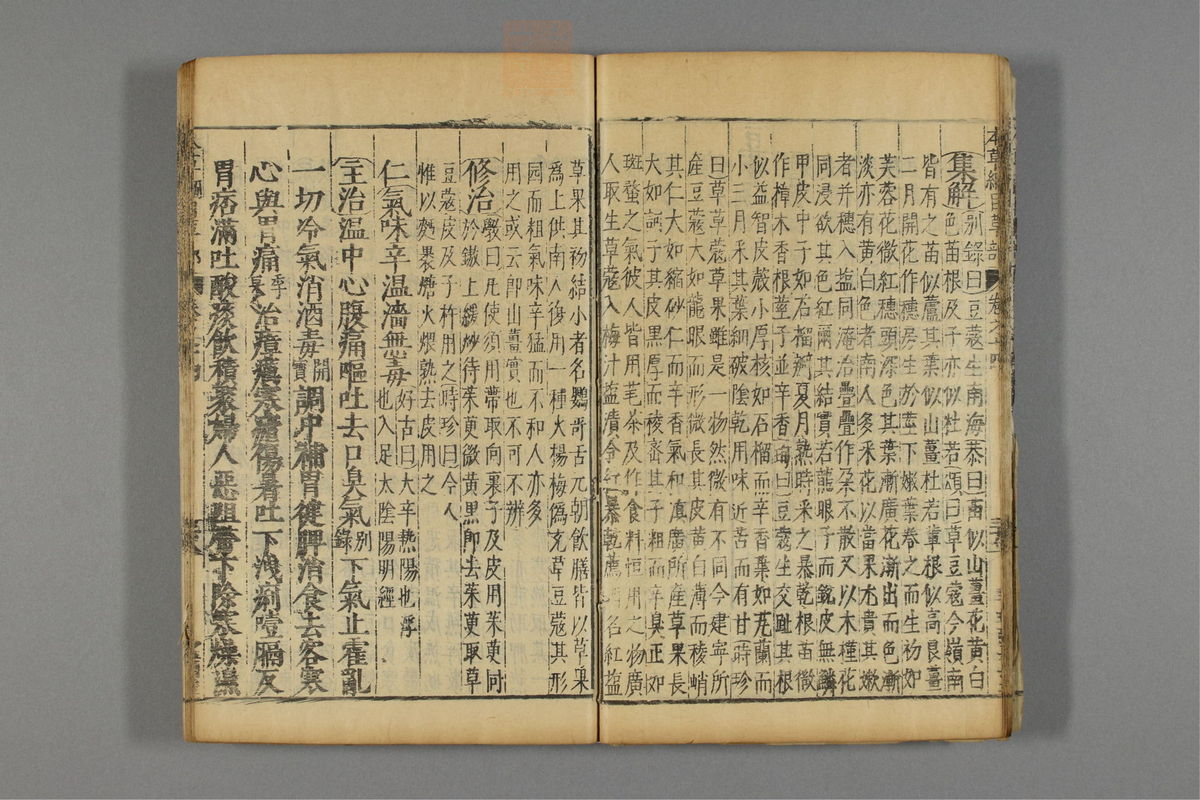 集解別錄曰豆蔻生南海恭曰苗似山薑花黃白
色苗根及子亦似杜若頌曰草豆蔻今嶺南
皆有之苗似蘆其葉似山薑杜若輩根似高良薑
二月開花作穗房生於莖下嫩葉卷之而生初如
芙蓉花微紅穗頭深色其葉漸廣花漸出而色漸
淡亦有黃白色者南人多采花以當果尤貴其嫩
者并穗入鹽同淹治疊疊作朶不散又以木槿花
同浸欲其色紅爾其結實若龍眼子而銳皮無鱗
甲皮中子如石榴瓣夏月熟時采之暴乾根苗微
作樟木香根莖子並辛香珣曰豆蔻生交趾其根
似益智皮殼小厚核如石榴而辛香葉如芄蘭而
小三月采其葉細破陰乾用味近苦而有甘時珍
曰草草蔻草果雖是一物然微有不同今建寧所
產豆蔻大如龍眼而形微長其皮黃白薄而稜峭
其仁大如縮砂仁而辛香氣和滇廣所產草果長
大如訶子其皮黑厚而稜密其子粗而辛臭正如
斑蝥之氣彼人皆用芼茶及作食料恒用之物廣
人取生草蔻入梅汁鹽漬令紅暴乾薦 名紅鹽
草果其初結小者名鸚哥舌元朝飲膳皆以草果
爲上供南人復用一種火楊梅僞充草豆蔻其形
圓而粗氣味辛猛而不和人亦多
用之或云卽山薑實也不可不辨
修治斅曰凡使須用帶取向裏子及皮用茱萸同
於鏉上緩炒待茱萸微黃黑卽去茱萸取草
豆蔻皮及子杵用之時珍曰今人
惟以麪裹煻火煨熟去皮用之
仁氣味辛溫濇無毒好古曰大辛熱陽也浮
也入足太陰陽明經
主治溫中心腹痛嘔吐去口臭氣別錄下氣止霍亂
一切冷氣消酒毒開寶調中補胃健脾消食去客寒
心與胃痛李杲治瘴癘寒瘧傷暑吐下洩痢噎膈反
胃痞滿吐酸痰飲積聚婦人惡阻帶下除寒燥濕